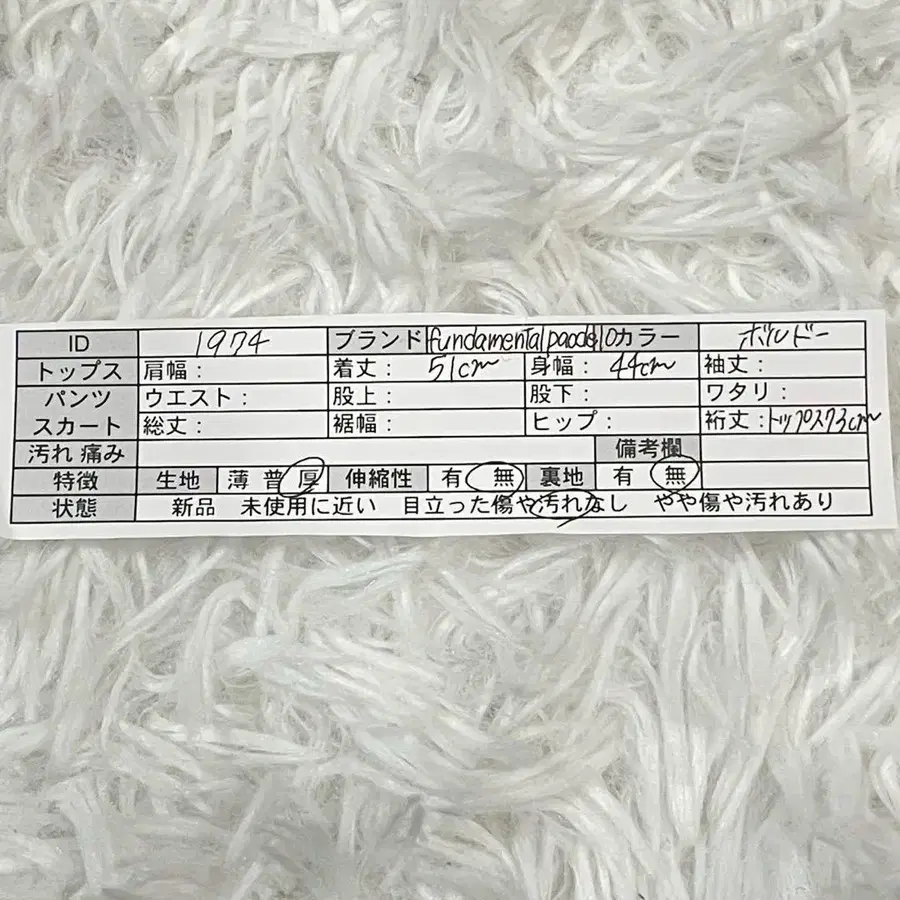 ID 1974 ブランド fundamental カラー ボルドー
トップス 肩幅: 着丈: 51cm 身幅: 44cm 袖丈:
パンツ ウエスト: 股上: 股下: ワタリ:
スカート 総丈: 裾幅: ヒップ: 裄丈:トップス73cm
汚れ 痛み 備考欄
特徴 生地 薄 普 厚 伸縮性 有 無 裏地 有 無
状態 新品 未使用に近い 目立った傷や汚れなし やや傷や汚れあり